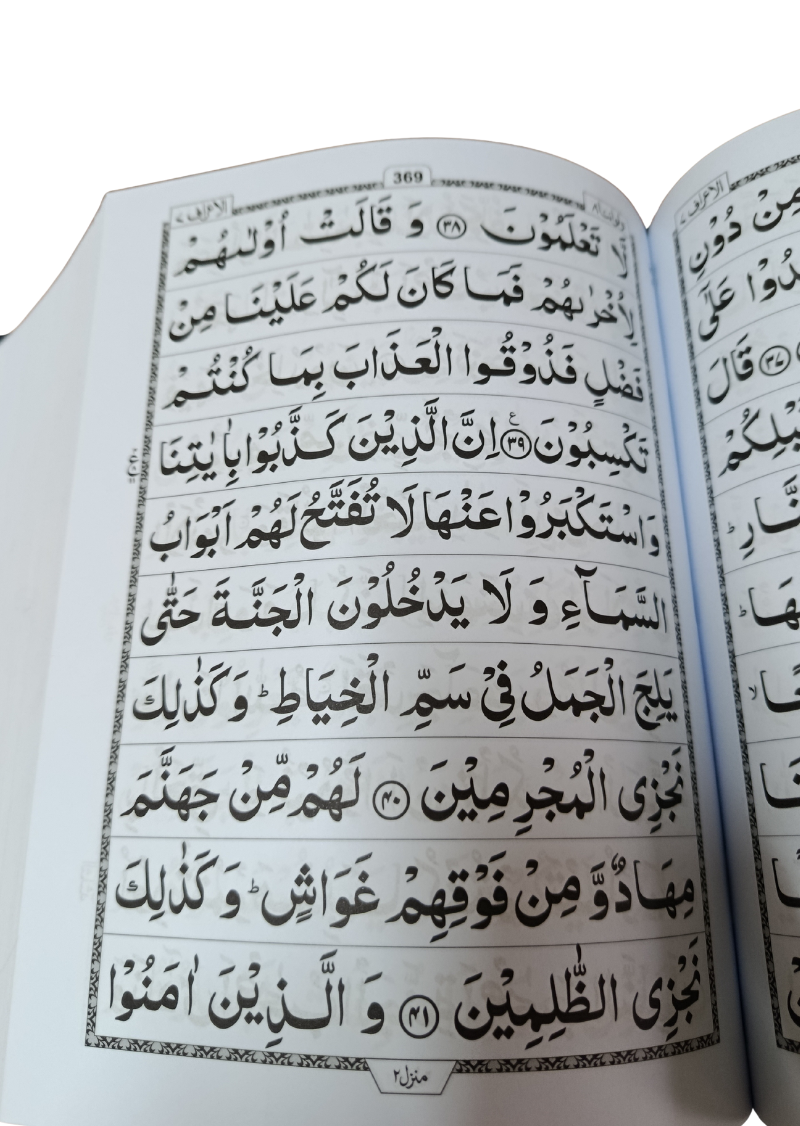 369
الاعراف ٧
لَا تَعْلَمُوْنَ ﴿٣٨﴾ وَ قَالَتْ اُوْلٰىهُمْ
لِاُخْرٰىهُمْ فَمَا كَانَ لَكُمْ عَلَيْنَا مِنْ
فَضْلٍ فَذُوْقُوا الْعَذَابَ بِمَا كُنْتُمْ
تَكْسِبُوْنَ ﴿٣٩﴾ ع اِنَّ الَّذِيْنَ كَذَّبُوْا بِاٰيٰتِنَا
وَاسْتَكْبَرُوْا عَنْهَا لَا تُفَتَّحُ لَهُمْ اَبْوَابُ
السَّمَآءِ وَ لَا يَدْخُلُوْنَ الْجَنَّةَ حَتّٰى
يَلِجَ الْجَمَلُ فِيْ سَمِّ الْخِيَاطِ ؕ وَ كَذٰلِكَ
نَجْزِى الْمُجْرِمِيْنَ ﴿٤٠﴾ لَهُمْ مِّنْ جَهَنَّمَ
مِهَادٌ وَّ مِنْ فَوْقِهِمْ غَوَاشٍ ؕ وَ كَذٰلِكَ
نَجْزِى الظّٰلِمِيْنَ ﴿٤١﴾ وَ الَّذِيْنَ اٰمَنُوْا
منزل ٢
الاعراف ٧
مِنْ دُوْنِ
عَلٰٓى
﴿٣٧﴾ قَالَ